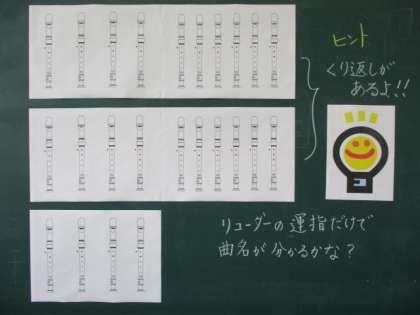 ヒント
くり返しが
あるよ!!
リコーダーの運指だけで
曲名が分かるかな?